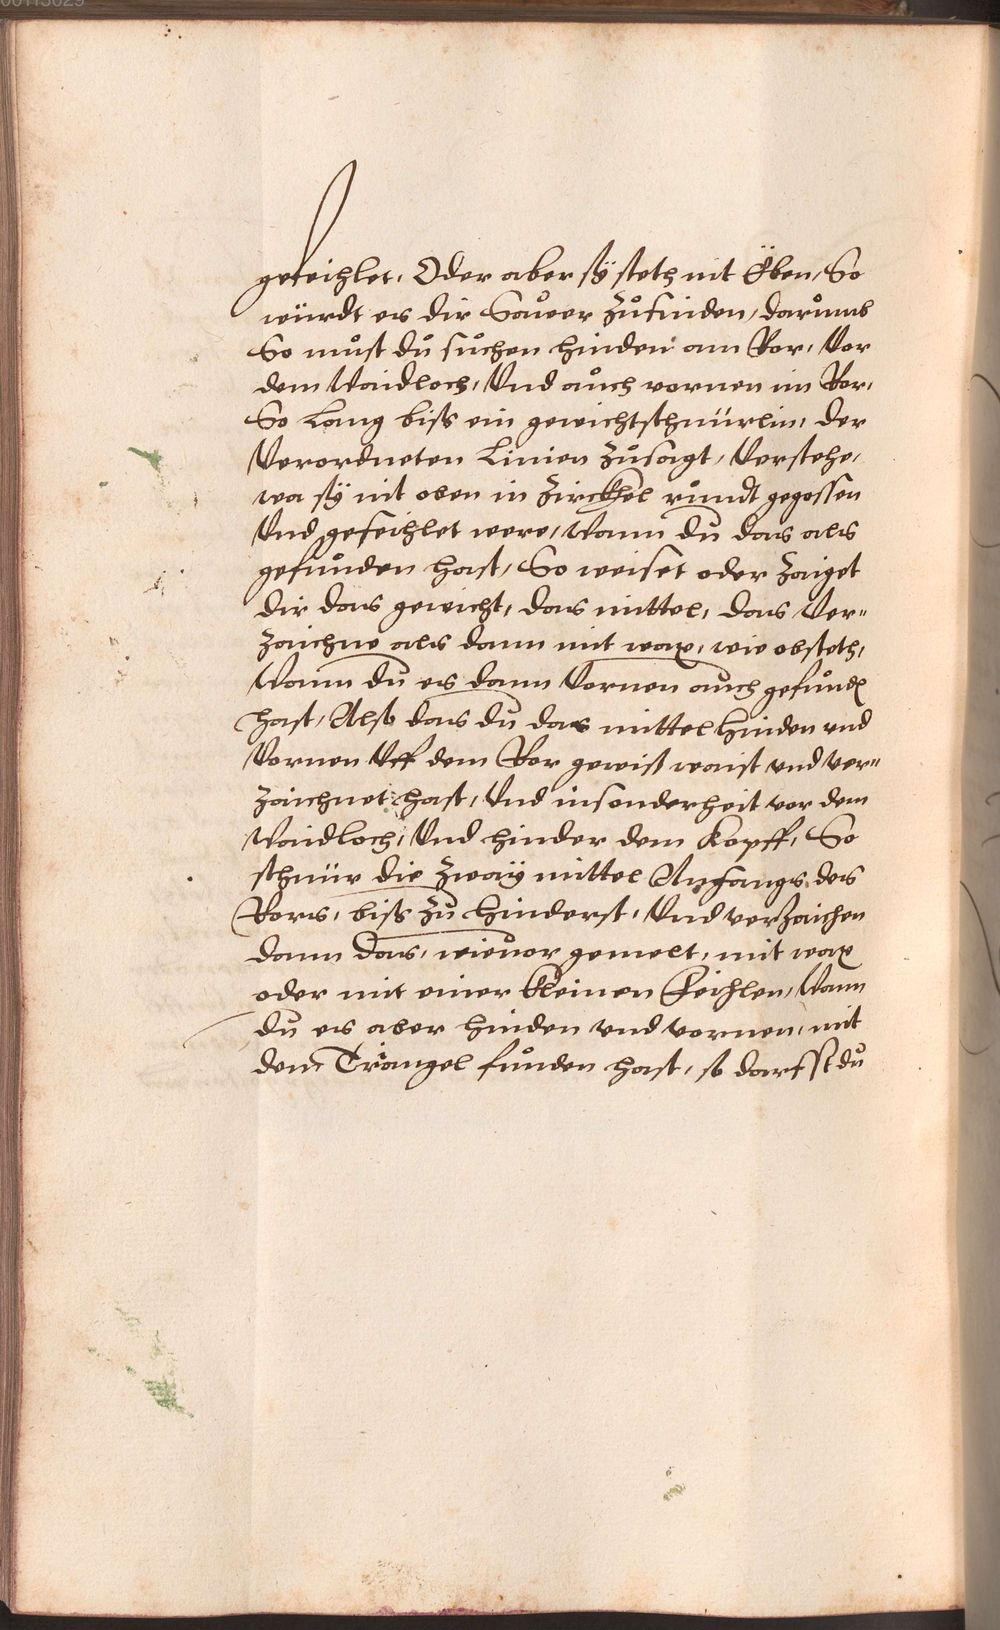 00113029
gefeihlet, Oder aber sÿ steth nit Eben, So
würdt es dir Sauer zufinden, darumb
So must du suchen hinden am Ror, Vor
dem Waidloch, Vnd auch vornen im Ror,
So Lang biß ein gewichtschnürlin, der
Verordneten Linien zusagt, Verstehe,
wa sÿ nit oben in Zirckhel rundt gegossen
Vnd gefeihlet were, Wann du das als
gefunden hast, So weiset oder Zaiget
dir das gewicht, das mittel, das Ver„
zaichne als dann mit wax, wie obsteth,
Wann du es dann Vornen auch gefunden
hast, Also das du das mittel hinden vnd
Vornen Vff dem Ror gewiß waist vnd ver„
zaichnet hast, Vnd insonderheit vor dem
Waidloch, Vnd hinder dem Kopff, So
schnür die zwaÿ mittel Anfangs des
Rors, biß zu hinderst, Vnd verzaichen
dann das, wieuor gemelt, mit wax
oder mit einer kleinen Feihlen, Wann
du es aber hinden vnd vornen, mit
dem Triangel funden hast, so darfst du